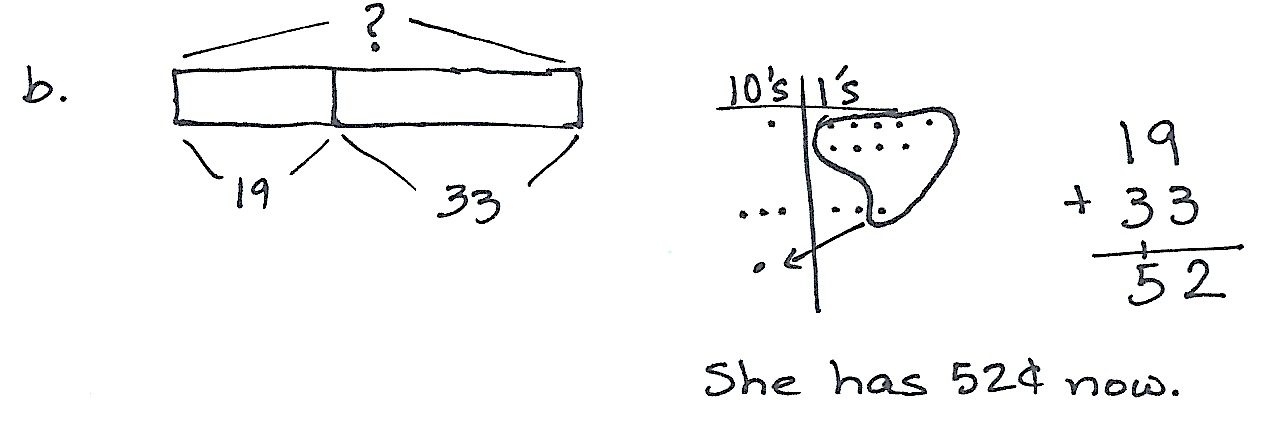 ?
b.
19 33
10's 1's
19
+ 33
1
52
She has 52¢ now.